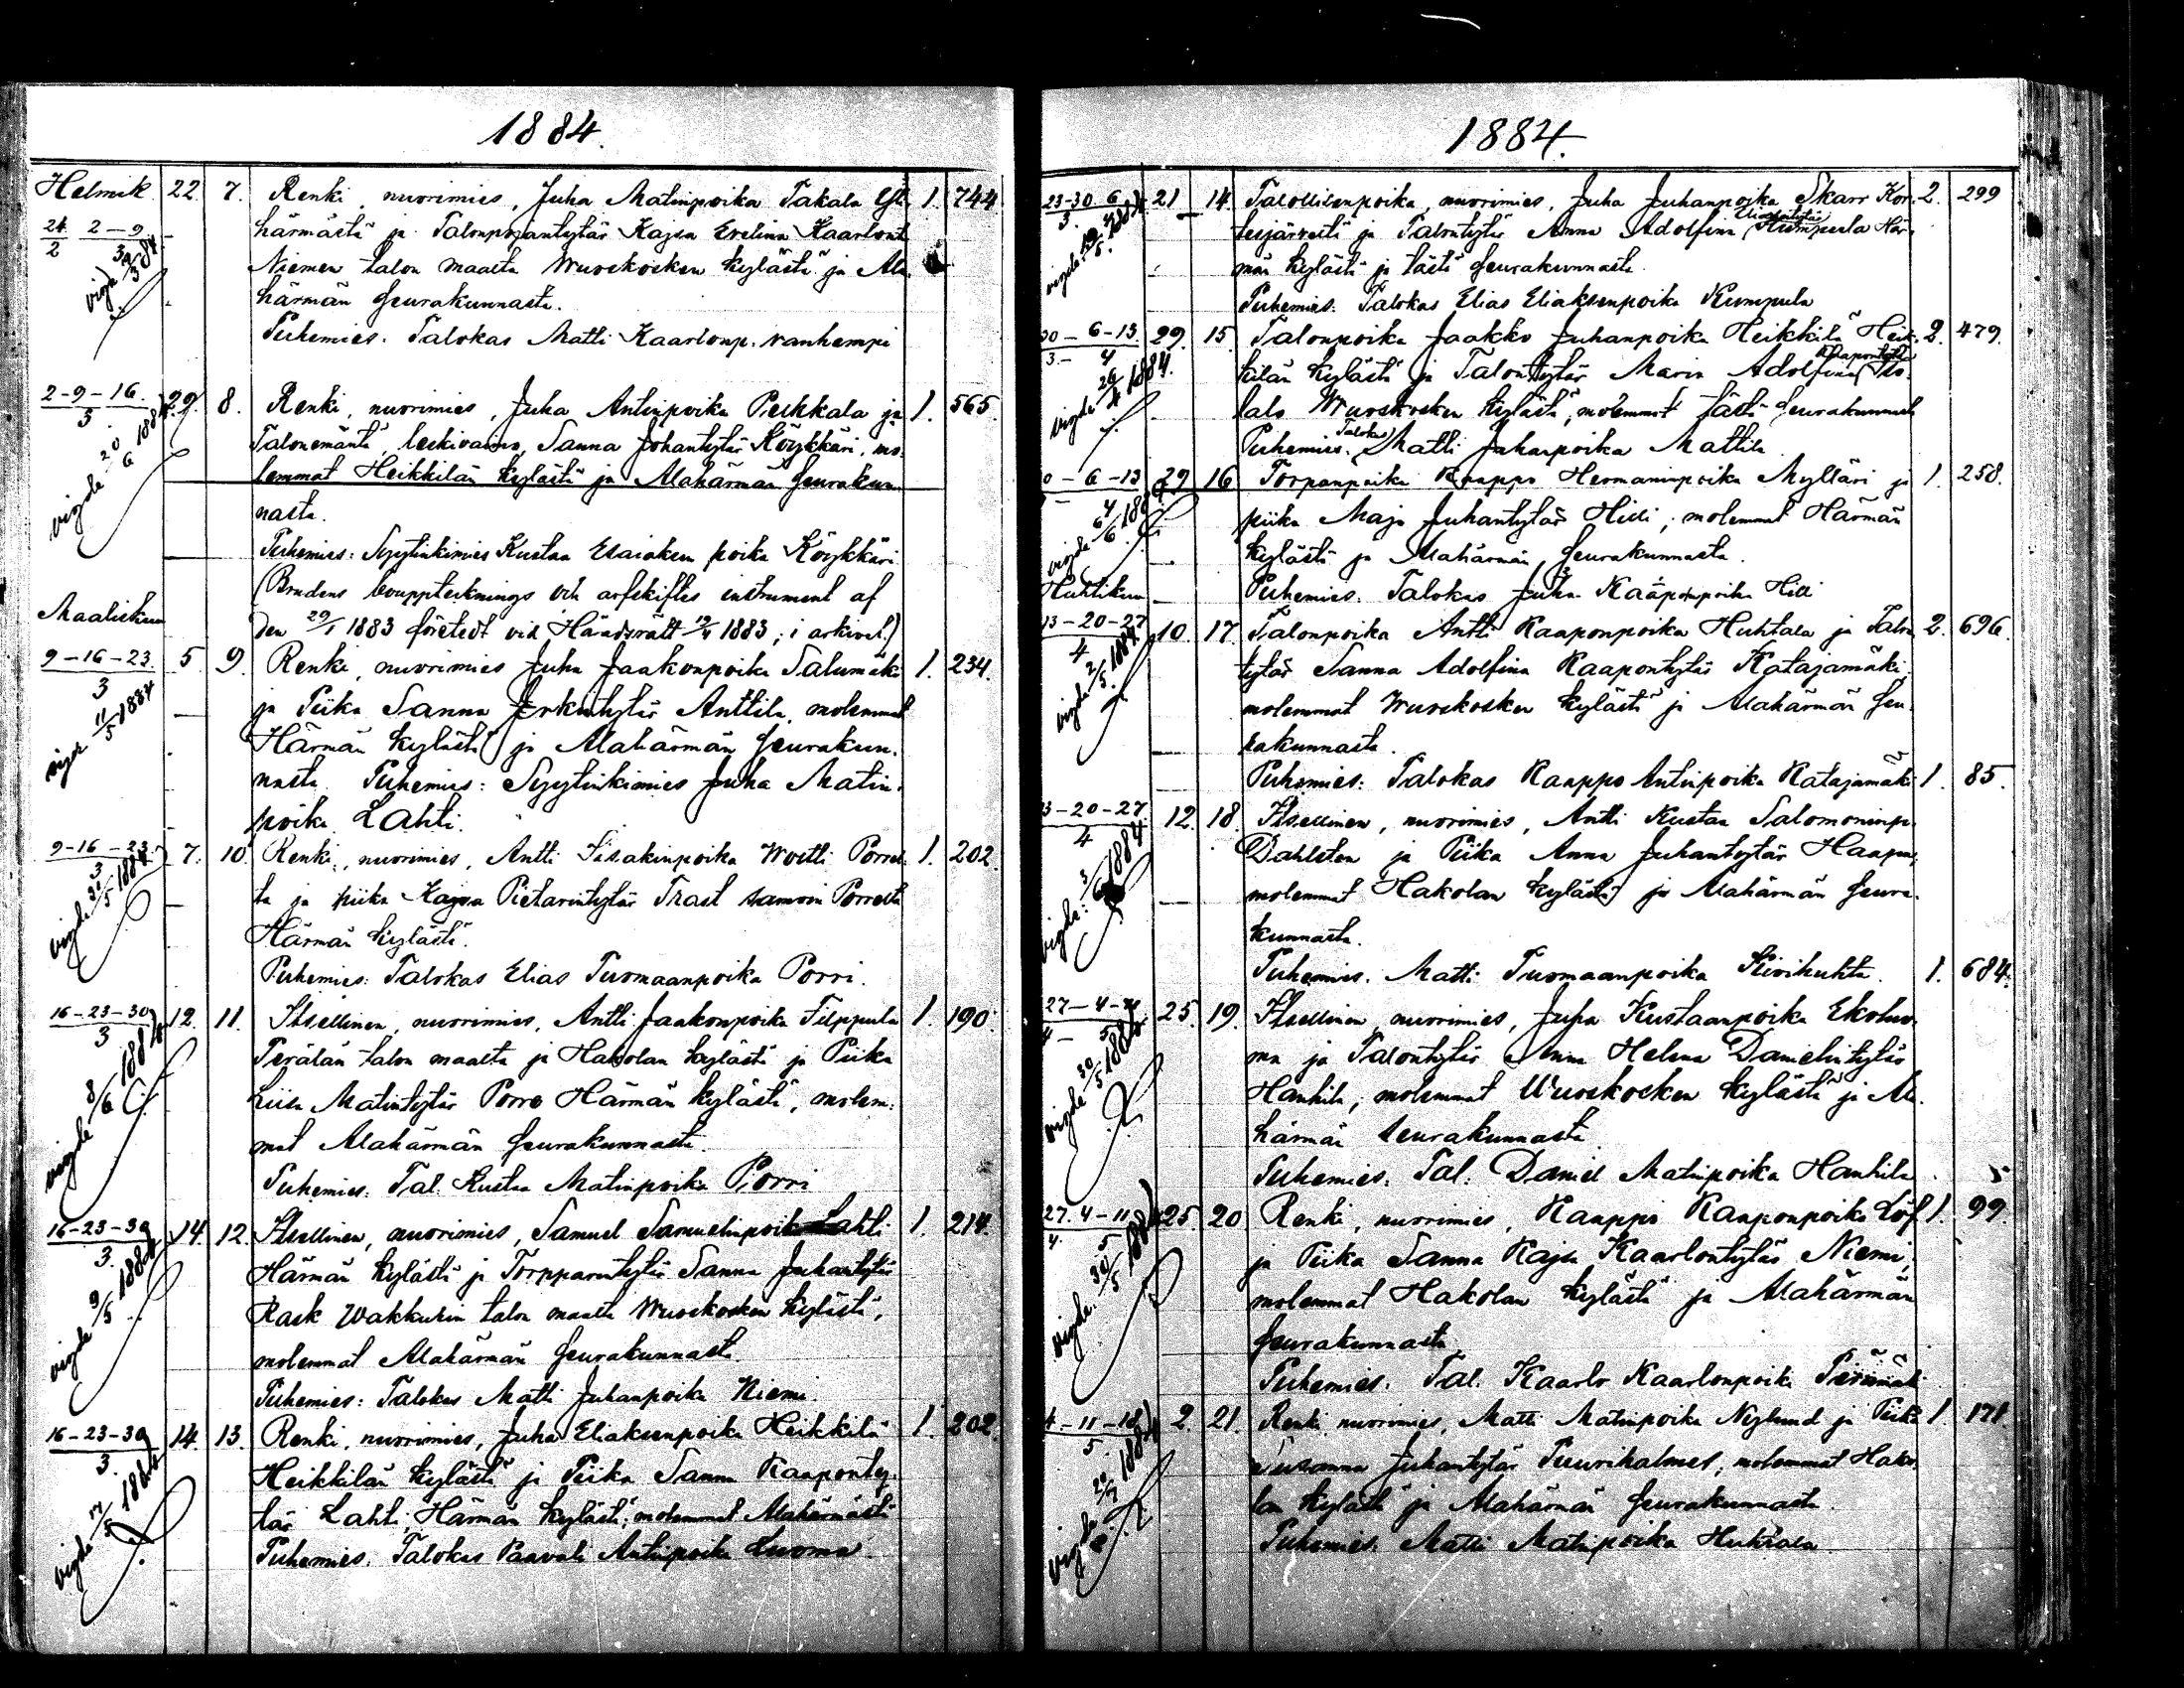 1884.
Helmik. 22. 7. Renki, nuorimies, Juha Matinpoika Takala Yli 1. 744
24/2 2-9/3 härmästä ja Talonpojantytär Kajsa Evelina Kaarlont.
Niemen talon maalta Wuoskosken kylästä ja Ala
härmän seurakunnasta.
Puhemies. Talokas Matti Kaarlonp. vanhempi
2-9-16/3 29. 8. Renki, nuorimies, Juha Antinpoika Pukkala ja 1. 565.
Talonemäntä, leskivaimo, Sanna Johantytär Köykkäri, mo
lemmat Heikkilän kylästä ja Alahärmän seurakun
nasta.
Puhemies: Syytinkimies Kustaa Esaiaksen poika Köykkäri
(Brudens bouppteknings och arfskiftes instrument af
Maaliskuu
den 29/1 1883 företedt vid Häradsrätt 1883; i arkivet.)
9-16-23/3 5. 9. Renki, nuorimies Juha Jaakonpoika Salumäki 1. 234.
vigde 11/5 1884 ja Piika Sanna Erkintytär Anttila, molemmat
Härmän kylästä ja Alahärmän seurakun.
nasta. Puhemies: Syytinkimies Juha Matin.
poika Lahti.
9-16-23/3 7. 10. Renki, nuorimies, Antti Iisakinpoika Woitti Porres 1. 202.
ta ja piika Kajsa Pietarintytär Trast samoin Porresta
Härmän kylästä.
Puhemies: Talokas Elias Tuomaanpoika Porri.
16-23-30/3 12. 11. Itsellinen, nuorimies, Antti Jaakonpoika Filppula 1. 190
vigde 8/6 1884 Perälän talon maalta ja Hakolan kylästä ja Piika
Liisa Matintytär Porre Härmän kylästä, molem.
mat Alahärmän seurakunnasta.
Puhemies. Tal. Kustaa Matinpoika Porri
16-23-30/3 14. 12. Itsellinen, nuorimies, Samuel Samuelinpoika Lahti 1. 214.
vigde 9/5 1884 Härmän kylästä ja Torpparintytär Sanna Juhantytär
Kask Wakkurin talon maalta Wuoskosken kylästä,
molemmat Alahärmän seurakunnasta.
Puhemies: Talokas Matti Juhanpoika Niemi.
16-23-30/3 14 13. Renki, nuorimies, Juha Eliaksenpoika Heikkilä 1. 202.
Heikkilän kylästä ja Piika Sanna Kaaponty.
tär Lahti Härmän kylästä; molemmat Alahärmästä
Puhemies. Talokas Paavali Antinpoika Luoma.
1884.
23-30 6/3 21 14. Talollisenpoika, nuorimies, Juha Juhanpoika Skarr Kor. 2. 299
tesjärveltä ja Talontytär Anna Adolfina Eliaksentytär Kumpula Här.
män kylästä ja tästä seurakunnasta.
Puhemies. Talokas Elias Eliaksenpoika Kumpula
30-6-13 29. 15. Talonpoika Jaakko Juhanpoika Heikkilä Heik. 2. 479.
kilän kylästä ja Talontytär Maria Adolfina Kaapontytär Iso.
talo Wuoskosken kylästä, molemmat tästä seurakunnasta
Puhemies. Talokas Matti Juhanpoika Mattila
30-6-13 29 16 Torpanpoika Kaappo Hermaninpoika Mylläri ja 1. 258.
piika Maja Juhantytär Hilli; molemmat Härmän
kylästä ja Alahärmän seurakunnasta.
Huhtikuu Puhemies. Talokas Juha Kaaponpoika Hilli
13-20-27/4 10. 17. Talonpoika Antti Kaaponpoika Huhtala ja Talon 2. 696.
vigde 2/5 1884 tytär Sanna Adolfina Kaapontytär Katajamäki
molemmat Wuoskosken kylästä ja Alahärmän seu.
rakunnasta.
Puhemies: Talokas Kaappo Antinpoika Katajamäki 1. 85.
13-20-27/4 12. 18. Itsellinen, nuorimies, Antti Kustaa Salomoninp.
Dahlsten ja Piika Anna Juhantytär Haapa
molemmat Hakolan kylästä ja Alahärmän seura.
kunnasta.
Puhemies. Matti Tuomaanpoika Kivihuhta 1. 684.
27-4-11 25. 19. Itsellinen nuorimies, Juha Kustaanpoika Ekoluo
vigde 30/5 1884 ma ja Talontytär Anna Helena Danielintytär
Hanhila, molemmat Wuoskosken kylästä ja Ala
härmän seurakunnasta
Puhemies. Tal. Daniel Matinpoika Hanhila
27. 4-11 25. 20 Renki, nuorimies, Kaappo Kaaponpoika Löf 1. 99.
vigde 30/5 1884 ja Piika Sanna Kajsa Kaarlontytär Niemi,
molemmat Hakolan kylästä ja Alahärmän
seurakunnasta
Puhemies. Tal. Kaarlo Kaarlonpoika
4-11-18/5 2. 21. Renki nuorimies, Matti Matinpoika Nylund ja Piika 1. 171.
Susanna Juhantytär Puurikalmes, molemmat Hako
lan kylästä ja Alahärmän seurakunnasta.
Puhemies. Matti Matinpoika Huhtala